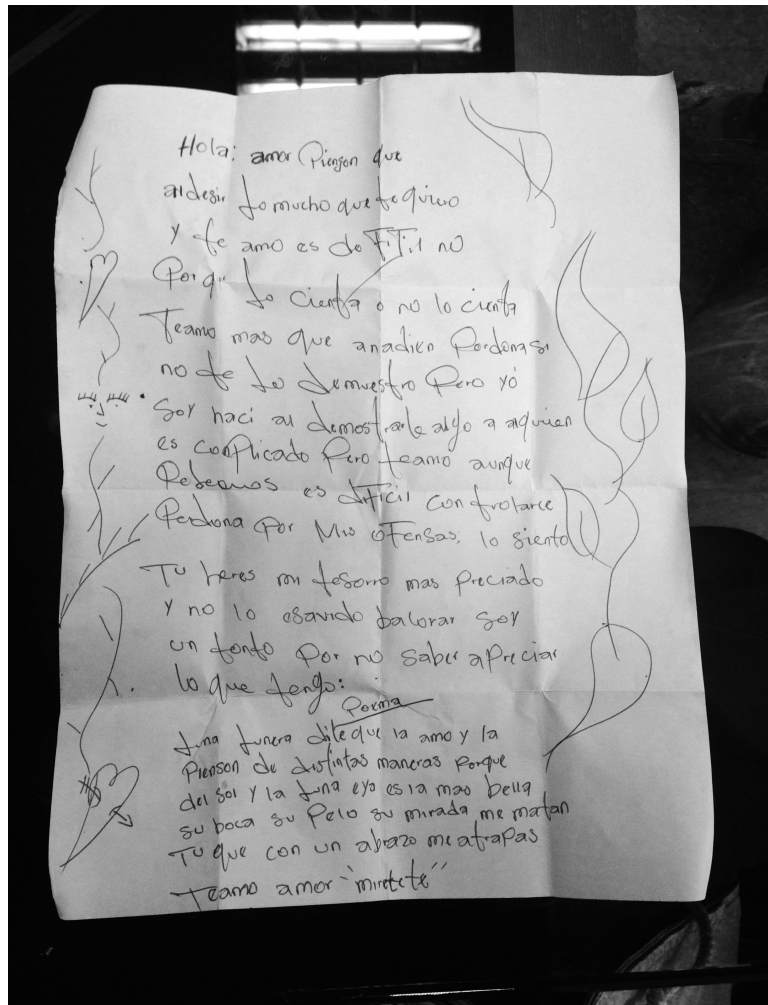 Hola: amor Pienson que
al desir lo mucho que te quiero
y te amo es de FiTil no
Porque lo cienta o no lo cienta
Teamo mas que anadien Perdona si
no te lo demuestro Pero yó
Soy haci al demostrarle algo a alquien
es conPlicado Pero teamo aunque
Peleamos es diFicil controlarce
Perdona Por Mis oFensas, lo siento
Tu heres mi tesorro mas Preciado
y no lo esavido balorar soy
un tonto Por no saber aPreciar
lo que tengo:
Poema
Luna lunera dile que la amo y la
Pienson de distintas maneras Porque
del sol y la luna eya es la mas bella
su boca su Pelo su mirada me matan
Tu que con un abrazo me atraPas
Teamo amor